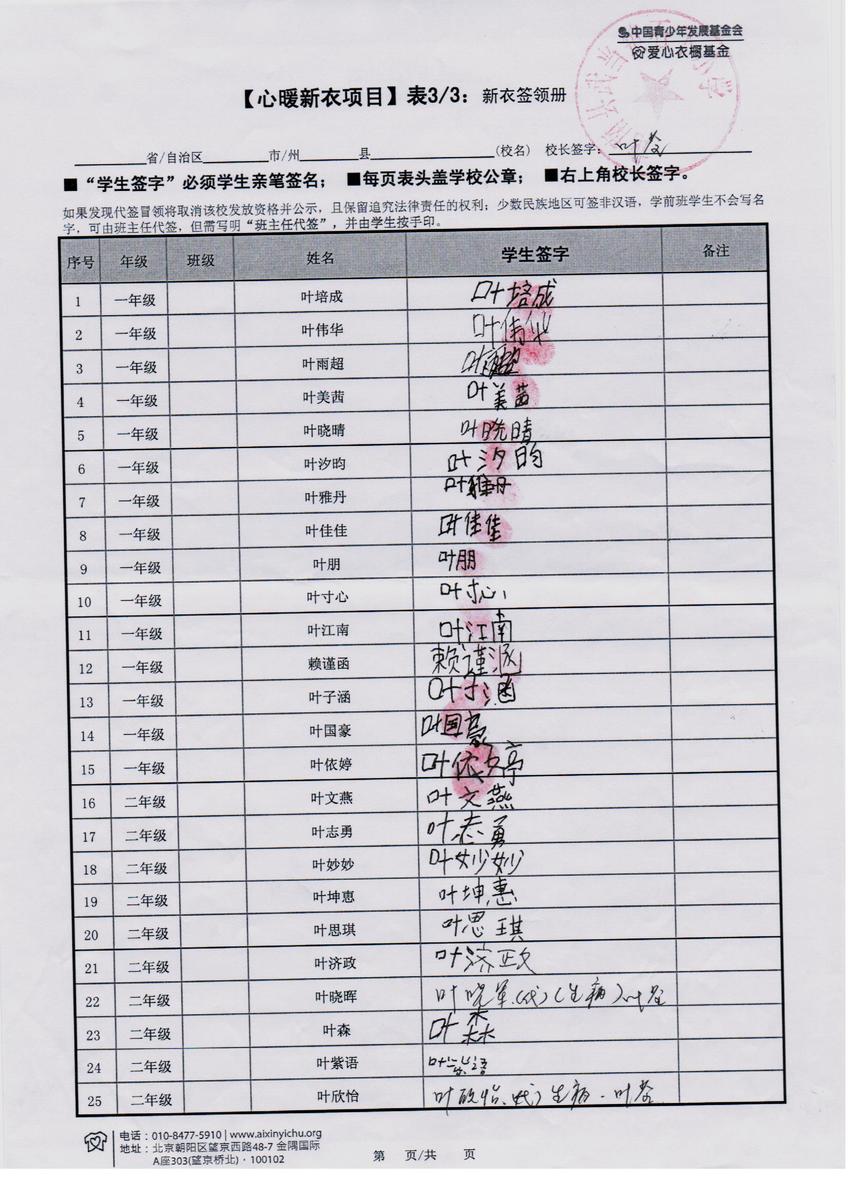 中国青少年发展基金会
爱心衣橱基金
【心暖新衣项目】表3/3：新衣签领册
省/自治区 市/州 县 (校名) 校长签字：叶荃
■“学生签字”必须学生亲笔签名； ■每页表头盖学校公章； ■右上角校长签字。
如果发现代签冒领将取消该校发放资格并公示，且保留追究法律责任的权利；少数民族地区可签非汉语，学前班学生不会写名
字，可由班主任代签，但需写明“班主任代签”，并由学生按手印。
序号 年级 班级 姓名 学生签字 备注
1 一年级 叶培成 叶培成
2 一年级 叶伟华 叶伟华
3 一年级 叶雨超 叶雨超
4 一年级 叶美茜 叶美茜
5 一年级 叶晓晴 叶晓晴
6 一年级 叶汐昀 叶汐昀
7 一年级 叶雅丹 叶雅丹
8 一年级 叶佳佳 叶佳佳
9 一年级 叶朋 叶朋
10 一年级 叶寸心 叶寸心
11 一年级 叶江南 叶江南
12 一年级 赖谨函 赖谨涵
13 一年级 叶子涵 叶子涵
14 一年级 叶国豪 叶国豪
15 一年级 叶依婷 叶依婷
16 二年级 叶文燕 叶文燕
17 二年级 叶志勇 叶志勇
18 二年级 叶妙妙 叶妙妙
19 二年级 叶坤惠 叶坤惠
20 二年级 叶思琪 叶思琪
21 二年级 叶济政 叶济政
22 二年级 叶晓晖 叶晓军(代)(生病)叶荃
23 二年级 叶森 叶森
24 二年级 叶紫语 叶紫语
25 二年级 叶欣怡 叶欣怡(代)生病.叶荃
电话：010-8477-5910 | www.aixinyichu.org
地址：北京朝阳区望京西路48-7 金隅国际
A座303(望京桥北)·100102
第 页/共 页